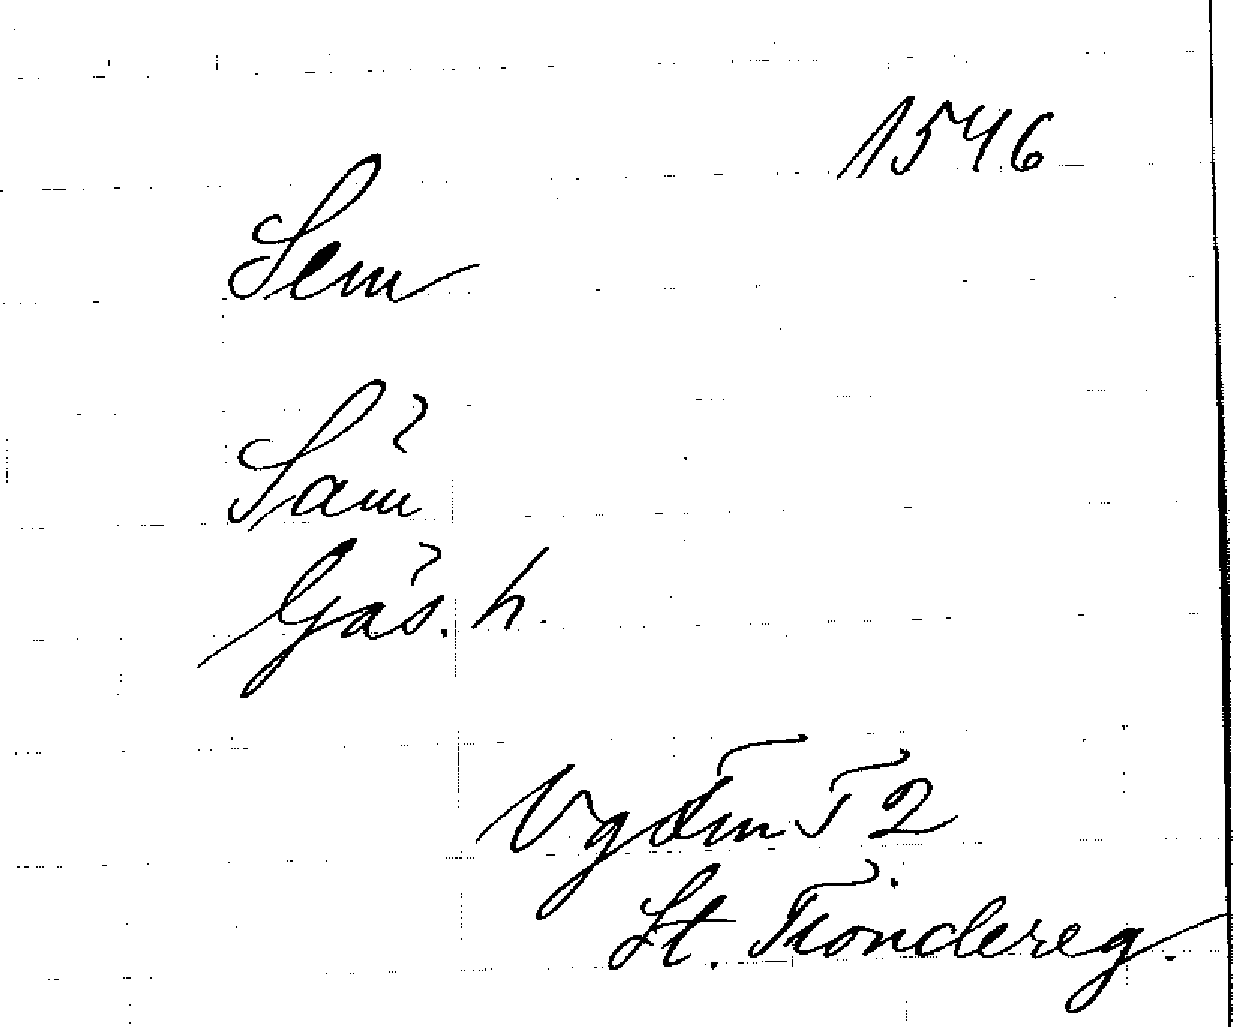 1546
Sem
Säm
Gäs. h.
Vg Tm T 2
St. Tiondereg.